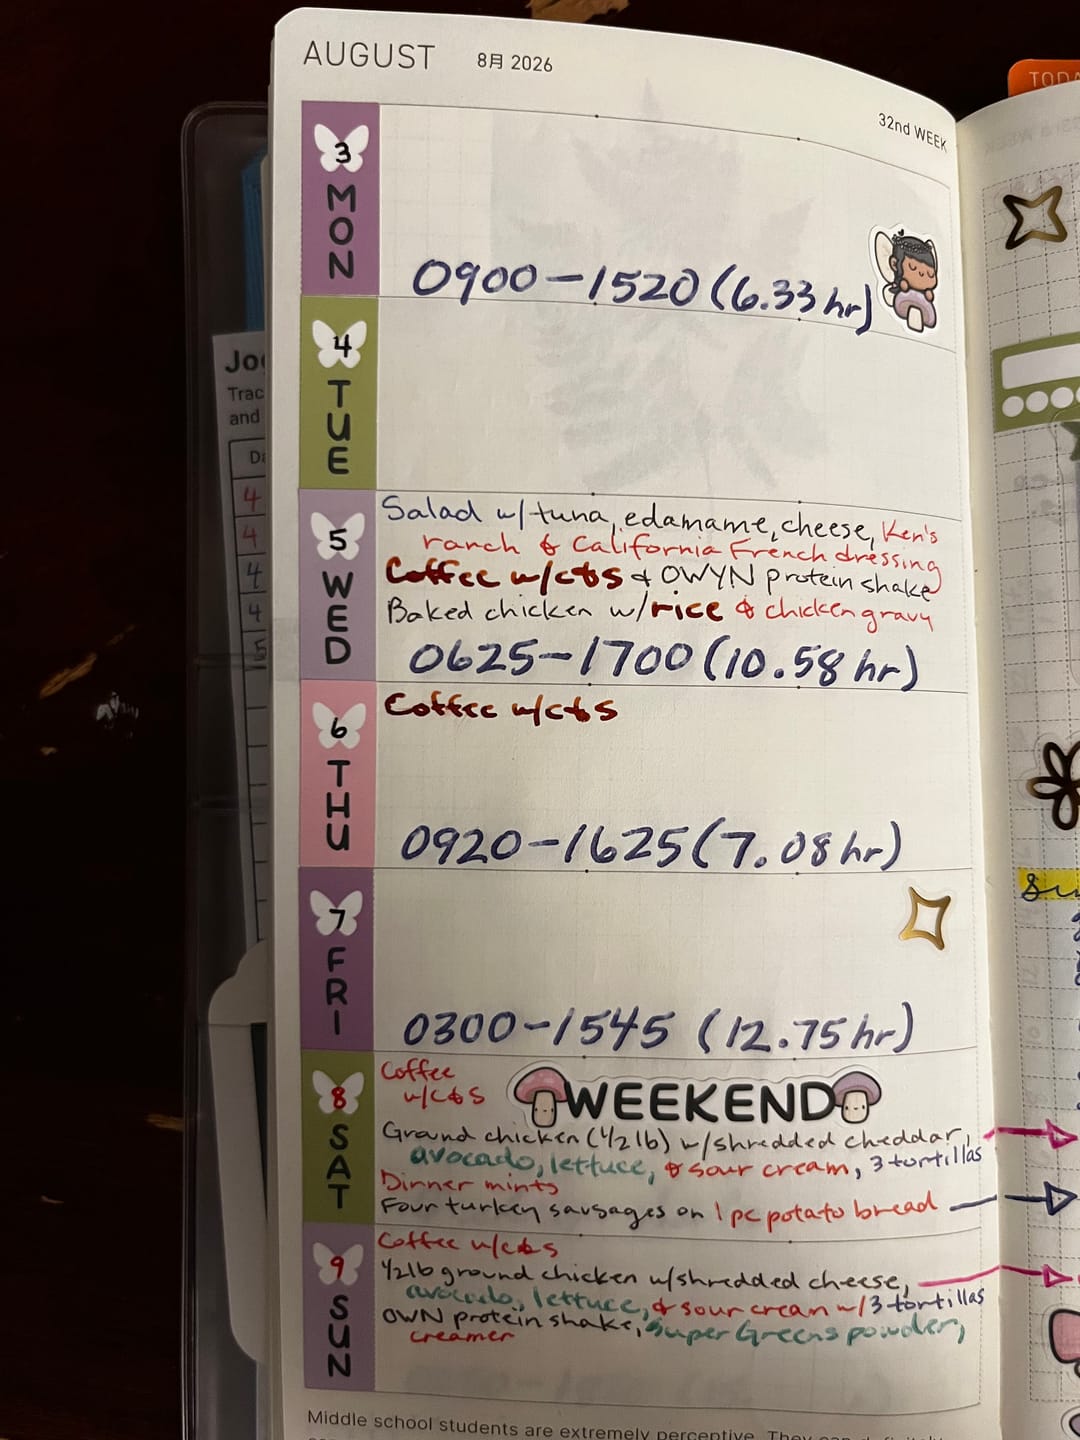 AUGUST 8月 2026
TODA
32nd WEEK
3 MON
0900-1520 (6.33 hr)
4 TUE
5 WED
Salad w/tuna, edamame, cheese, Ken's
ranch & California French dressing
Coffee w/c&s & OWYN protein shake
Baked chicken w/rice & chicken gravy
0625-1700 (10.58 hr)
6 THU
Coffee w/c&s
0920-1625 (7.08 hr)
7 FRI
0300-1545 (12.75 hr)
8 SAT
Coffee
w/c&s
WEEKEND
Ground chicken (1/2 lb) w/shredded cheddar,
avocado, lettuce, & sour cream, 3 tortillas
Dinner mints
Four turkey sausages on 1 pc potato bread
9 SUN
Coffee w/c&s
1/2 lb ground chicken w/shredded cheese,
avocado, lettuce, & sour cream w/3 tortillas
OWN protein shake, Super Greens powder,
creamer
Middle school students are extremely perceptive. They can definitely
Jo
Trac
and
Da
4
4
4
4
5
Su